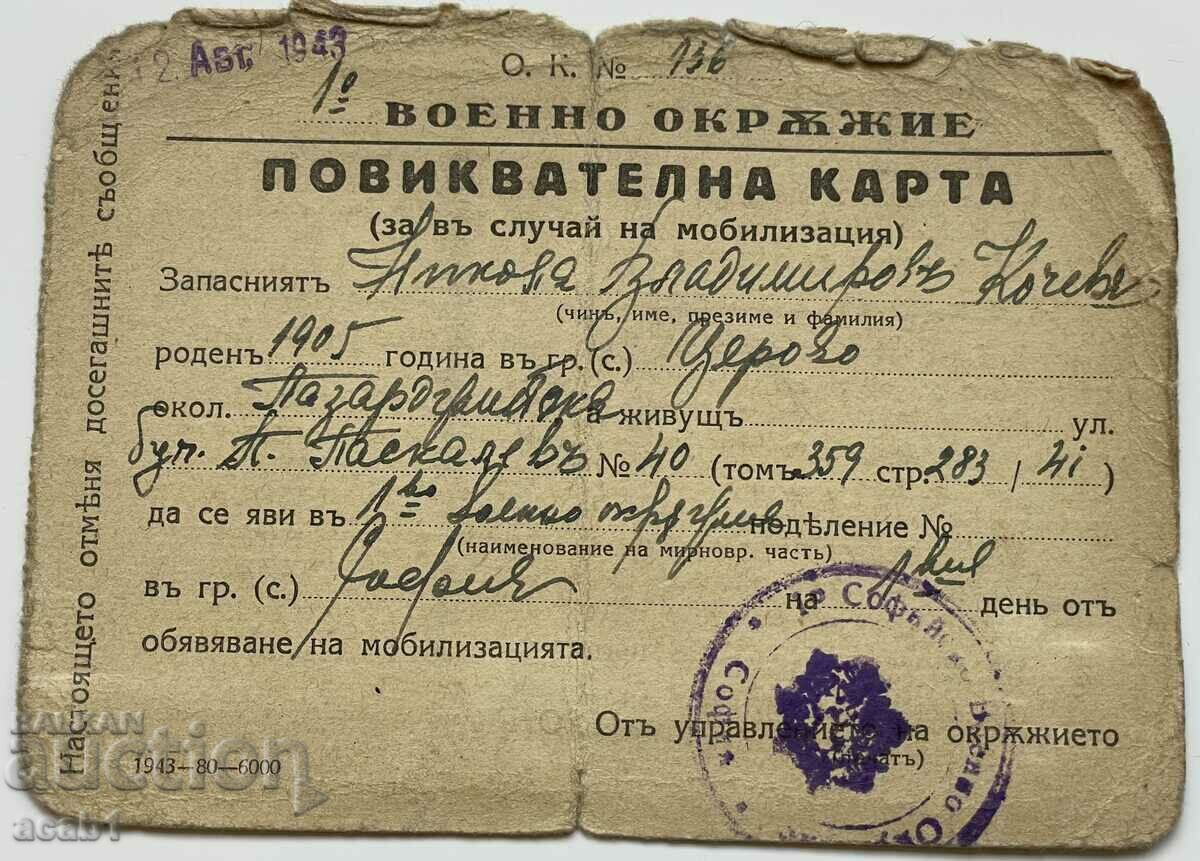 12. Авг. 1943
О. К. № 136
1о ВОЕННО ОКРѪЖИЕ
ПОВИКВАТЕЛНА КАРТА
(за въ случай на мобилизация)
Запасниятъ Никола Владимировъ Кочевъ
(чинъ, име, презиме и фамилия)
роденъ 1905 година въ гр. (с.) Церово
окол. Пазарджишка а живущъ ул.
бул. П. Паскалевъ № 40 (томъ 359 стр. 283 / 41)
да се яви въ 1во военно окръжие подѣление №
(наименование на мирновр. часть)
въ гр. (с.) София на 1вия день отъ
обявяване на мобилизацията.
Отъ управлението на окрѫжието
(печатъ)
1943—80—6000
Настоящето отмѣня досегашнитѣ съобщения
Софийско Военно София
BALKAN
auction
acab1